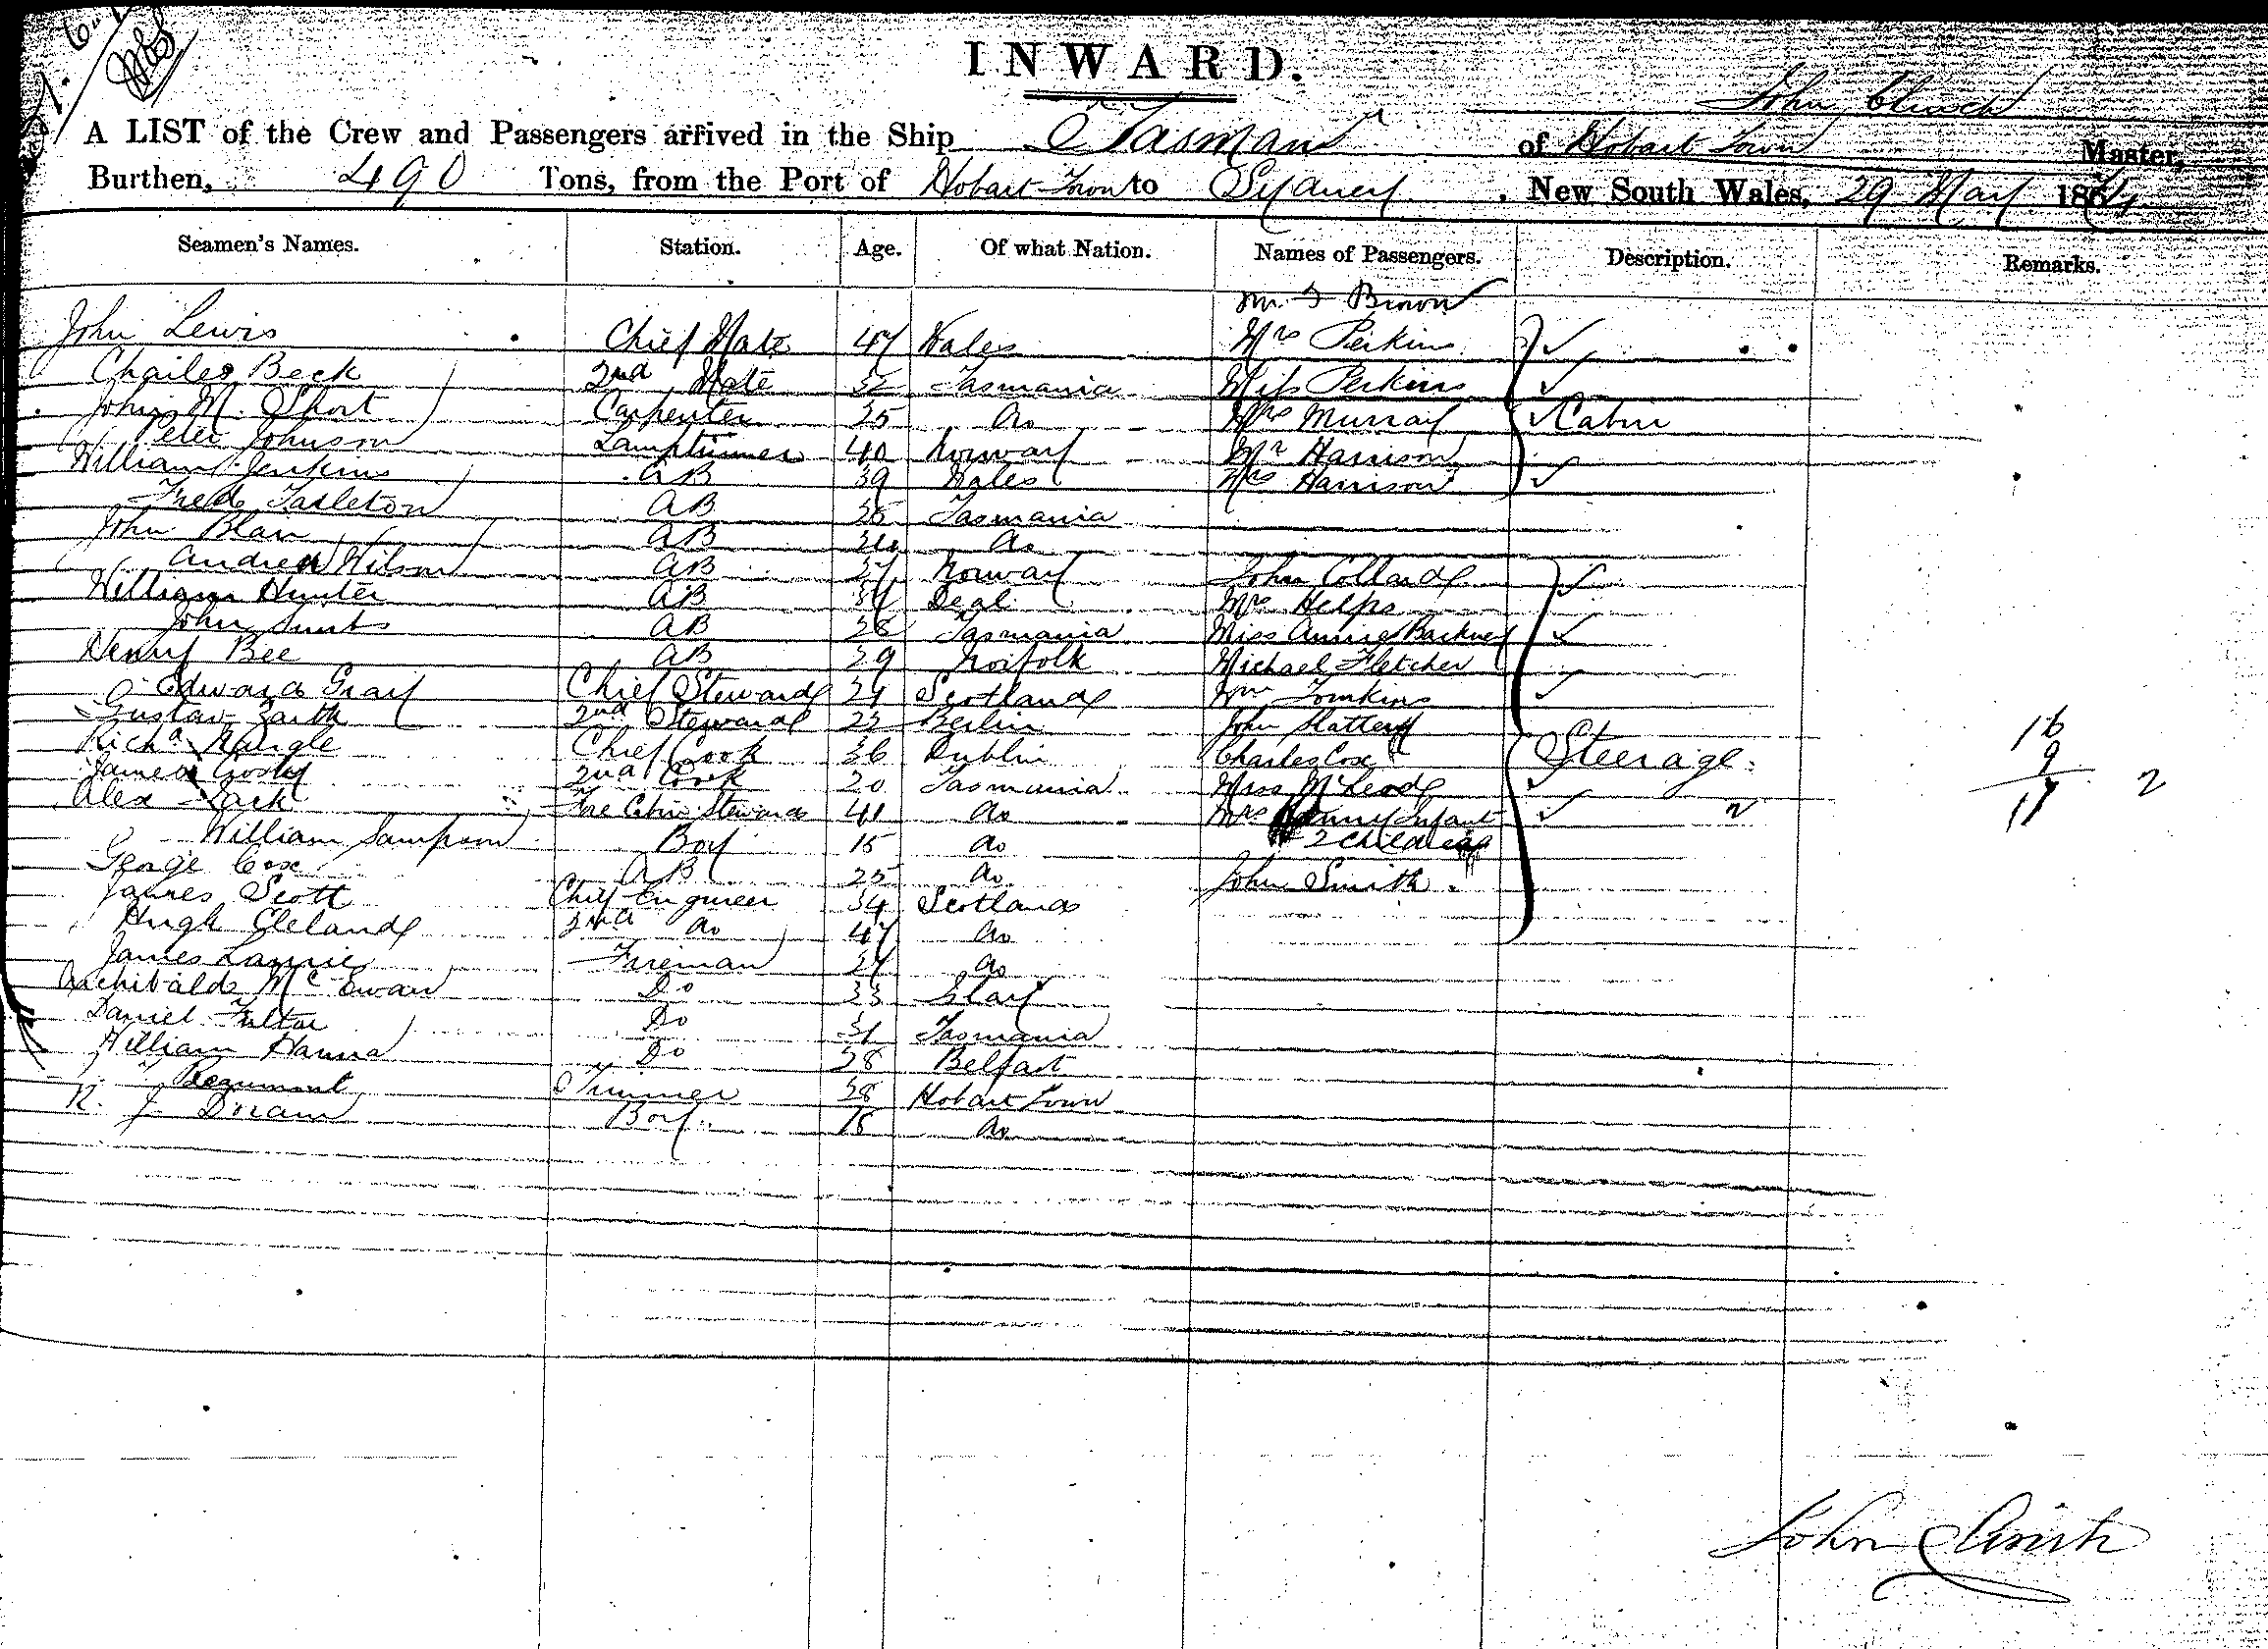 INWARD.
John Clinch
A LIST of the Crew and Passengers arrived in the Ship Tasman of Hobart Town Master,
Burthen, 490 Tons, from the Port of Hobart Town to Sydney, New South Wales, 29 May 18
Seamen's Names. Station. Age. Of what Nation. Names of Passengers. Description. Remarks.
Mr. Brown
John Lewis Chief Mate 47 Wales Mrs Perkins
Charles Beck 2nd Mate 32 Tasmania Miss Perkins
John M. Short Carpenter 25 do Mrs Murray Cabin
Peter Johnson Lamptrimmer 40 Norway Mr Harrison
William Jenkins AB 39 Wales Mrs Harrison
Fred Tarleton AB Tasmania
John Blair AB do
Andrew Wilson AB Norway John Collard
William Hunter AB Deal Mrs Helps
John AB 28 Tasmania Miss Annie
Henry Bee AB 29 Norfolk Michael Fletcher
Edward Gray Chief Steward Scotland Wm Tomkins
Gustav 2nd Steward 22 Berlin John Slattery
Richd Nangle Chief Cook 36 Dublin Charles Cox Steerage
James Crosby 2nd Cook 20 Tasmania Miss McLeod
Alex Lark Fore Cabin Steward 41 do Mrs Infant
William Sampson Boy 15 do 2 Children
George Cox AB 25 do John Smith
James Scott Chief Engineer 34 Scotland
Hugh Cleland 2nd do 47 do
James Lawrie Fireman 27 do
Archibald McEwan Do 33
Daniel Do Tasmania
William Hanna Do 28 Belfast
Beaumont Trimmer 38 Hobart Town
R. J. Doran Boy 18 do
16
9
17 2
John Clinch